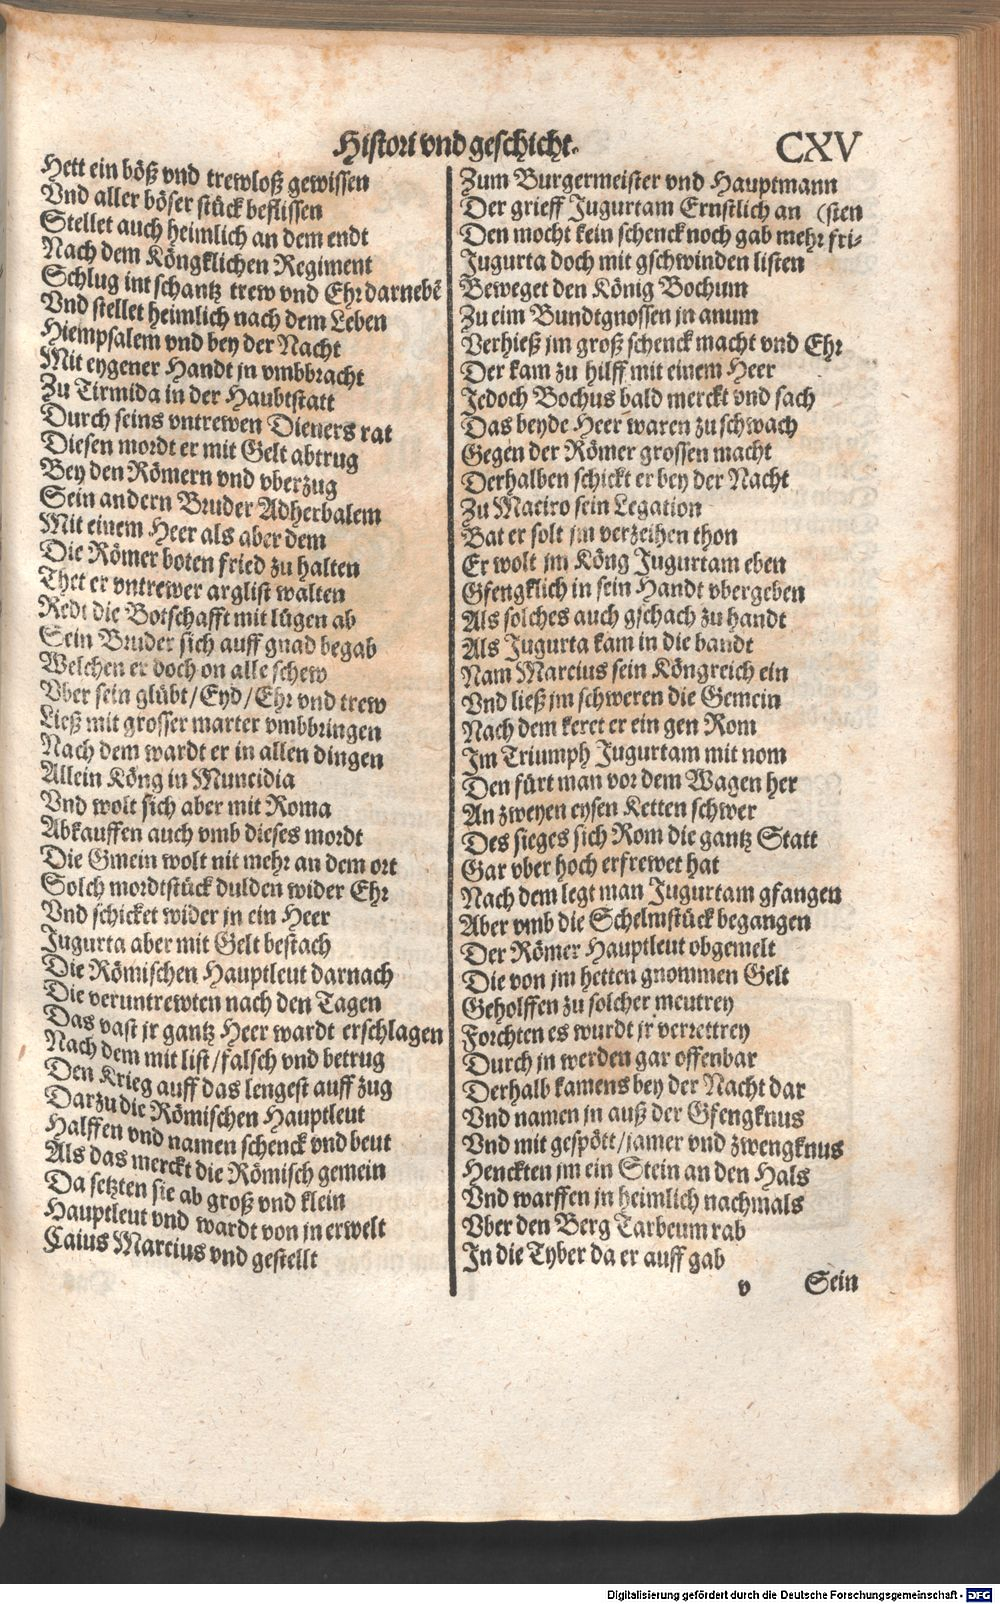 Histori vnd geschicht. CXV
Hett ein böß vnd trewloß gewissen
Vnd aller böser stück beflissen
Stellet auch heimlich an dem endt
Nach dem Köngklichen Regiment
Schlug int schantz trew vnd Ehr darnebē
Vnd stellet heimlich nach dem Leben
Hiempsalem vnd bey der Nacht
Mit eygener Handt jn vmbbracht
Zu Tirmida in der Haubtstatt
Durch seins vntrewen Dieners rat
Diesen mordt er mit Gelt abtrug
Bey den Römern vnd vberzug
Sein andern Bruder Adherbalem
Mit einem Heer als aber dem
Die Römer boten fried zu halten
Thet er vntrewer arglist walten
Redt die Botschafft mit lügen ab
Sein Bruder sich auff gnad begab
Welchen er doch on alle schew
Vber sein glübt/Eyd/Ehr vnd trew
Ließ mit grosser marter vmbbringen
Nach dem wardt er in allen dingen
Allein Köng in Muncidia
Vnd wolt sich aber mit Roma
Abkauffen auch vmb dieses mordt
Die Gmein wolt nit mehr an dem ort
Solch mordtstück dulden wider Ehr
Vnd schicket wider jn ein Heer
Jugurta aber mit Gelt bestach
Die Römischen Hauptleut darnach
Die veruntrewten nach den Tagen
Das vast jr gantz Heer wardt erschlagen
Nach dem mit list/falsch vnd betrug
Den Krieg auff das lengest auff zug
Darzu die Römischen Hauptleut
Halffen vnd namen schenck vnd beut
Als das merckt die Römisch gemein
Da setzten sie ab groß vnd klein
Hauptleut vnd wardt von jn erwelt
Caius Martius vnd gestellt
Zum Burgermeister vnd Hauptmann
Der grieff Jugurtam Ernstlich an (sten
Den mocht kein schenck noch gab mehr fri-
Jugurta doch mit gschwinden listen
Beweget den König Bochum
Zu eim Bundtgnossen jn anum
Verhieß jm groß schenck macht vnd Ehr
Der kam zu hilff mit einem Heer
Jedoch Bochus bald merckt vnd sach
Das beyde Heer waren zu schwach
Gegen der Römer grossen macht
Derhalben schickt er bey der Nacht
Zu Marciro sein Legation
Bat er solt jm verzeihen thon
Er wolt jm Köng Jugurtam eben
Gfengklich in sein Handt vbergeben
Als solches auch gschach zu handt
Als Jugurta kam in die bandt
Nam Martius sein Köngreich ein
Vnd ließ jm schweren die Gemein
Nach dem keret er ein gen Rom
Im Triumph Jugurtam mit nom
Den fürt man vor dem Wagen her
An zweyen eysen Ketten schwer
Des sieges sich Rom die gantz Statt
Gar vber hoch erfrewet hat
Nach dem legt man Jugurtam gfangen
Aber vmb die Schelmstück begangen
Der Römer Hauptleut obgemelt
Die von jm hetten gnommen Gelt
Geholffen zu solcher meutrey
Forchten es wurdt jr verrettrey
Durch jn werden gar offenbar
Derhalb kamens bey der Nacht dar
Vnd namen jn auß der Gfengknus
Vnd mit gespött/jamer vnd zwengknus
Henckten jm ein Stein an den Hals
Vnd warffen jn heimlich nachmals
Vber den Berg Tarbeum rab
In die Tyber da er auff gab
v Sein
Digitalisierung gefördert durch die Deutsche Forschungsgemeinschaft - DFG